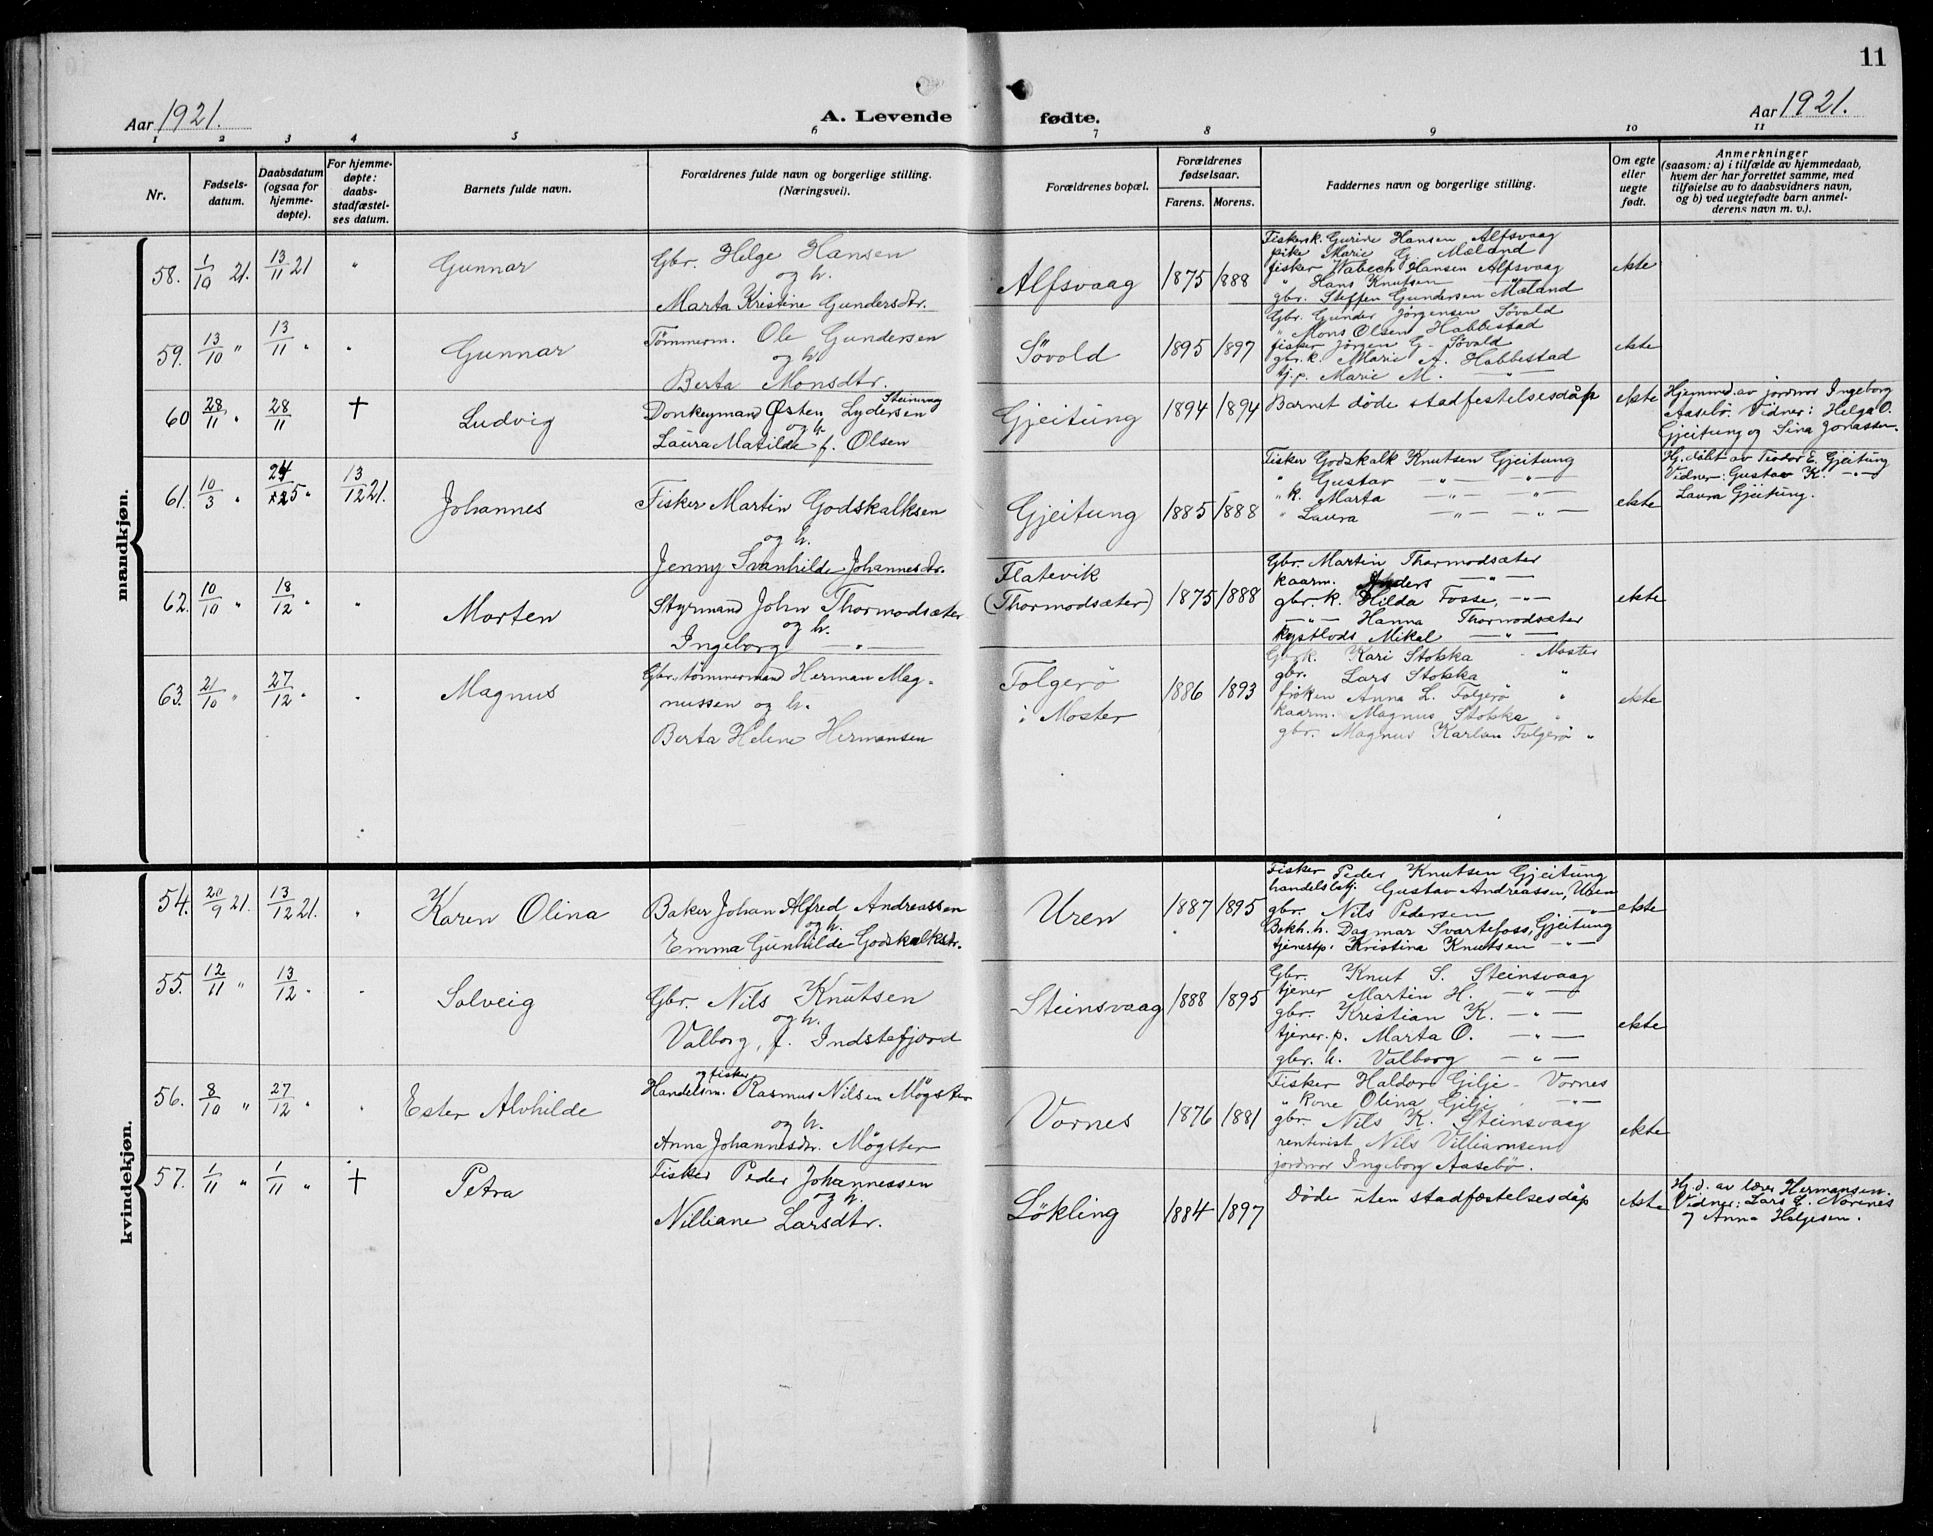 11
Aar 1921.
A. Levende fødte.
Aar 1921.
1 2 3 4 5 6 7 8 9 10 11
Nr.
Fødsels-
datum.
Daabsdatum
(ogsaa for
hjemme-
døpte).
For hjemme-
døpte:
daabs-
stadfæstel-
ses datum.
Barnets fulde navn.
Forældrenes fulde navn og borgerlige stilling.
(Næringsvei).
Forældrenes bopæl.
Forældrenes
fødselsaar.
Farens. Morens.
Faddernes navn og borgerlige stilling.
Om egte
eller
uegte
født.
Anmerkninger
(saasom: a) i tilfælde av hjemmedaab,
hvem der har forrettet samme, med
tilføielse av to daabsvidners navn,
og b) ved uegtefødte barn anmel-
derens navn m. v.).
mandkjøn.
58. 1/10 21. 13/11 21 " Gunnar
Gbr. Helge Hansen
og h.
Marta Kristine Gundersdtr.
Alfsvaag 1875 1888
Fiskersk. Gurine Hansen Alfsvaag
pike Marie G. Mæland
fisker Wabech Hansen Alfsvaag
" Hans Knutsen —"—
gbr. Steffen Gundersen Mæland
ekte
59. 13/10 " 13/11 " " Gunnar
Tømmerm. Ole Gundersen
og h.
Berta Monsdtr.
Søvold 1895 1897
Gbr. Gunder Jørgensen Søvold
" Mons Olsen Habbestad
fisker Jørgen G. Søvald
gbr. k. Marie A. Habbestad
tj. p. Marie M. —"—
ekte
60 28/11 " 28/11 † Ludvig
Steinsvag
Donkeymand Østen Lydersen
og h.
Laura Matilde f. Olsen
Gjeitung 1894 1894
Barnet døde stadfestelsesdåp
ekte
Hjemmed. av jordmor Ingeborg
Aasebö. Vidner: Helga O.
Gjeitung og Sina Jonassen.
61. 10/3 " 13/12 21. Johannes
Fisker Martin Godskalksen
og h.
Jenny Svanhilde Johannesdtr.
Gjeitung 1885 1888
Fisker Godskalk Knutsen Gjeitung
" Gustav —"— —"—
" k. Marta —"— —"—
" Laura —"— —"—
ekte
Hj. døbt av Teodor E. Gjeitung
Vidner: Gustav K. —"—
Laura Gjeitung.
62. 10/10 " 18/12 " " Morten
Styrmand John Thormodsæter
og h.
Ingeborg —"—
Flatevik
(Thormodsæter) 1875 1888
Gbr. Martin Thormodsæter
kaarm. Anders —"—
gbr. k. Hilda Fosse, —"—
—"— Hanna Thormodsæter
kystlods Mikal —"—
ekte
63. 21/10 " 27/12 " " Magnus
Gbr. tömmermand Herman Mag-
nussen og h.
Berta Helene Hermansen
Folgerö
i Moster 1886 1893
Gbr k. Kari Stokka - Moster
gbr. Lars Stokka "
fröken Anna L. Folgerö "
kaarm. Magnus Stokka "
gbr. Magnus Karlsen Folgerö "
ekte
kvindekjøn.
54. 20/9 21. 13/12 21. " Karen Olina
Baker Johan Alfred Andreassen
og h.
Emma Gunhilde Godskalksdr.
Uren 1887 1895
Fisker Peder Knutsen Gjeitung
handelsbtj. Gustav Andreassen, Uren
gbr. Nils Pedersen —"—
Bokh. h. Dagmar Svartefoss, Gjeitung
tjenerp. Kristina Knutsen —"—
ekte
55. 12/11 " 13/12 " " Solveig
Gbr. Nils Knutsen
og h.
Valborg, f. Indstefjord
Steinsvaag 1888 1895
Gbr. Knut S. Steinsvaag
tjener Martin H. —"—
gbr. Kristian K. —"—
tjener. p. Marta O. —"—
gbr. h. Valborg —"—
ekte
56. 8/10 " 27/12 " " Ester Alvhilde
og fisker
Handelsm. Rasmus Nilsen Møgster
og h.
Anna Johannesdr. Møgster
Vornes 1876 1881
Fisker Haldor Gilje - Vornes
" Kone Olina Gilje —"—
gbr. Nils K. Steinsvaag
rentenist Nils Villiamsen
jordmor Ingeborg Aasebö.
ekte
57. 1/11 " 1/11 " † Petra
Fisker Peder Johannessen
og h.
Nilliane Larsdtr.
Løkling 1884 1897
Døde uten stadfæstelsesdåp
ekte
Hj. d. av lærer Hermansen.
Vidner: Lars E. Nornes
og Anna Helgesen.